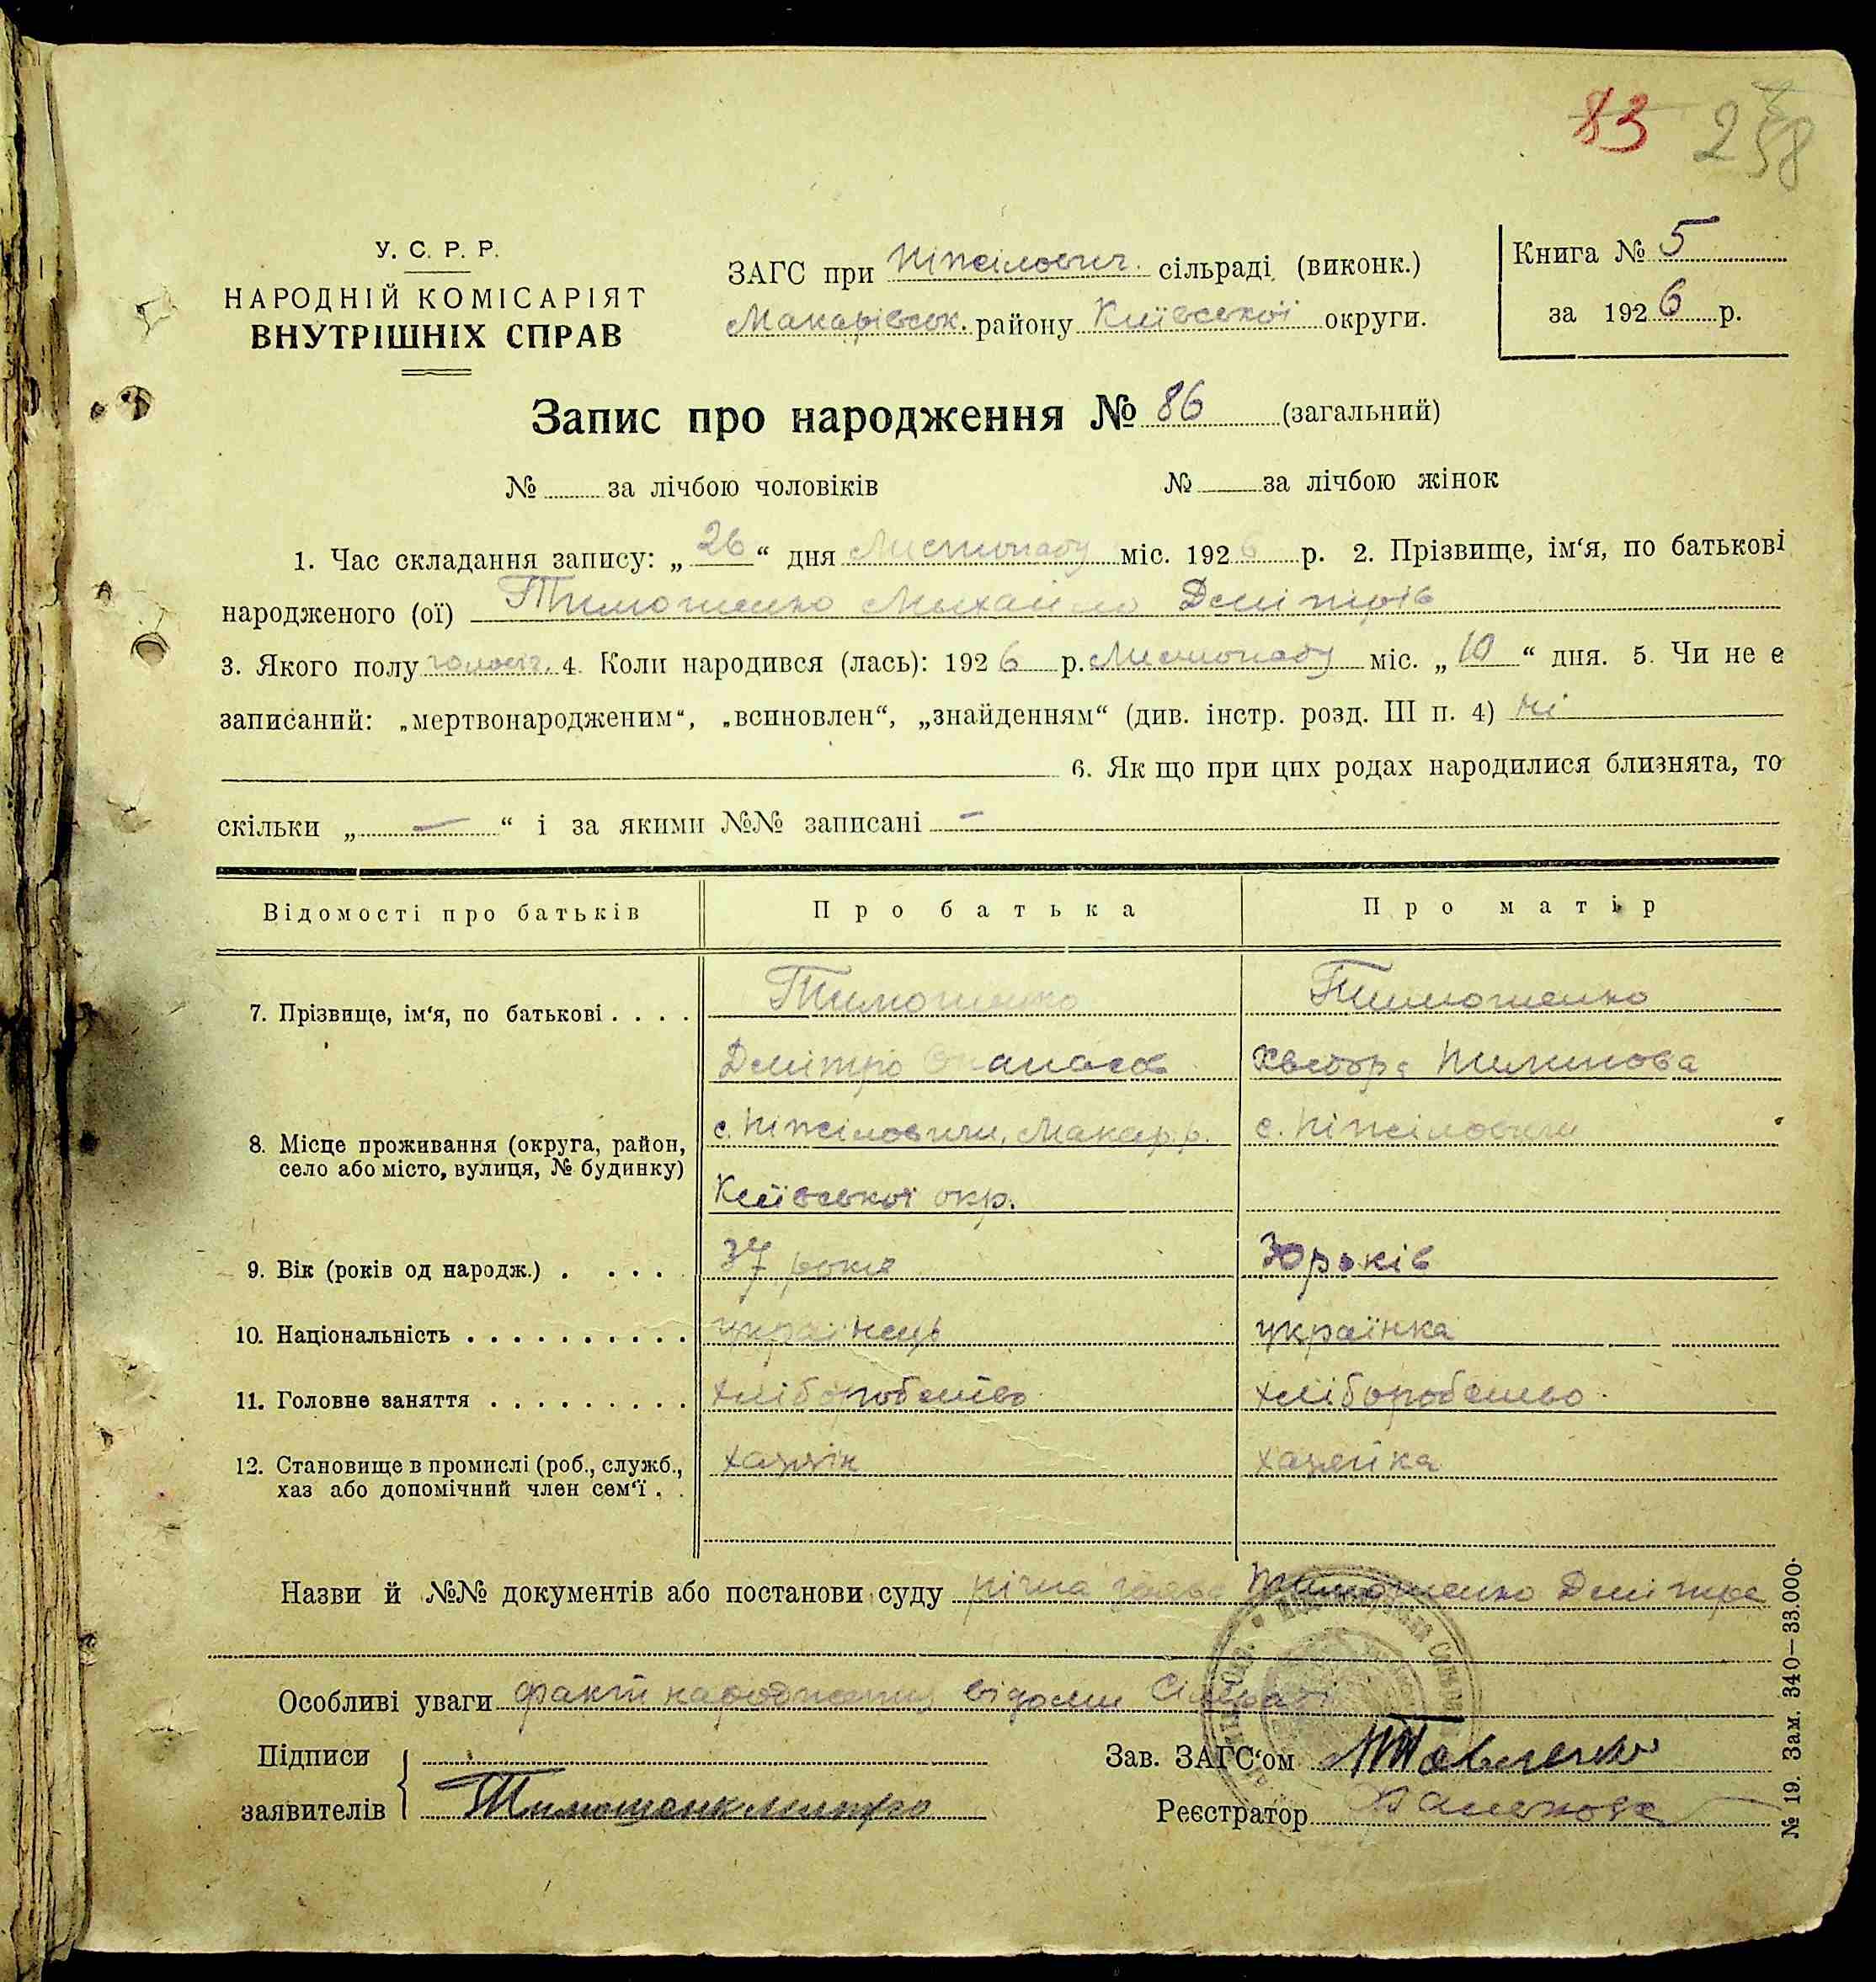 83 258
У. С. Р. Р.
НАРОДНІЙ КОМІСАРІЯТ
ВНУТРІШНІХ СПРАВ
ЗАГС при Ніжилович. сільраді (виконк.)
Макарівськ. району Київської округи.
Книга № 5
за 1926 р.
Запис про народження № 86 (загальний)
№ за лічбою чоловіків № за лічбою жінок
1. Час складання запису: „26“ дня Листопаду міс. 1926 р. 2. Прізвище, ім‘я, по батькові
народженого (ої) Тимошенко Михайло Дмітрів
3. Якого полу чоловіч. 4. Коли народився (лась): 1926 р. Листопаду міс. „10“ дня. 5. Чи не є
записаний: „мертвонародженим“, „всиновлен“, „знайденням“ (див. інстр. розд. III п. 4) ні
6. Як що при цих родах народилися близнята, то
скільки „ — “ і за якими №№ записані —
Відомості про батьків Про батька Про матір
7. Прізвище, ім‘я, по батькові . . . . Тимошенко Тимошенко
Дмітро Опанасов Хведора Пилипова
8. Місце проживання (округа, район,
село або місто, вулиця, № будинку)
с. Ніжиловичи, Макар. р. с. Ніжиловичи
Київської окр.
9. Вік (років од народж.) . . . . 37 років 30 років
10. Національність . . . . . . . . . . українець українка
11. Головне заняття . . . . . . . . . хліборобство хліборобство
12. Становище в промислі (роб., служб.,
хаз або допомічний член сем‘ї . .
хазяїн хазяйка
Назви й №№ документів або постанови суду заява Тимошенко Дмітра
Особливі уваги факт народження відомий Сільраді
Підписи
заявителів Тимошенк митро
Зав. ЗАГС‘ом
Реєстратор
№ 19. Зам. 340—33.000.